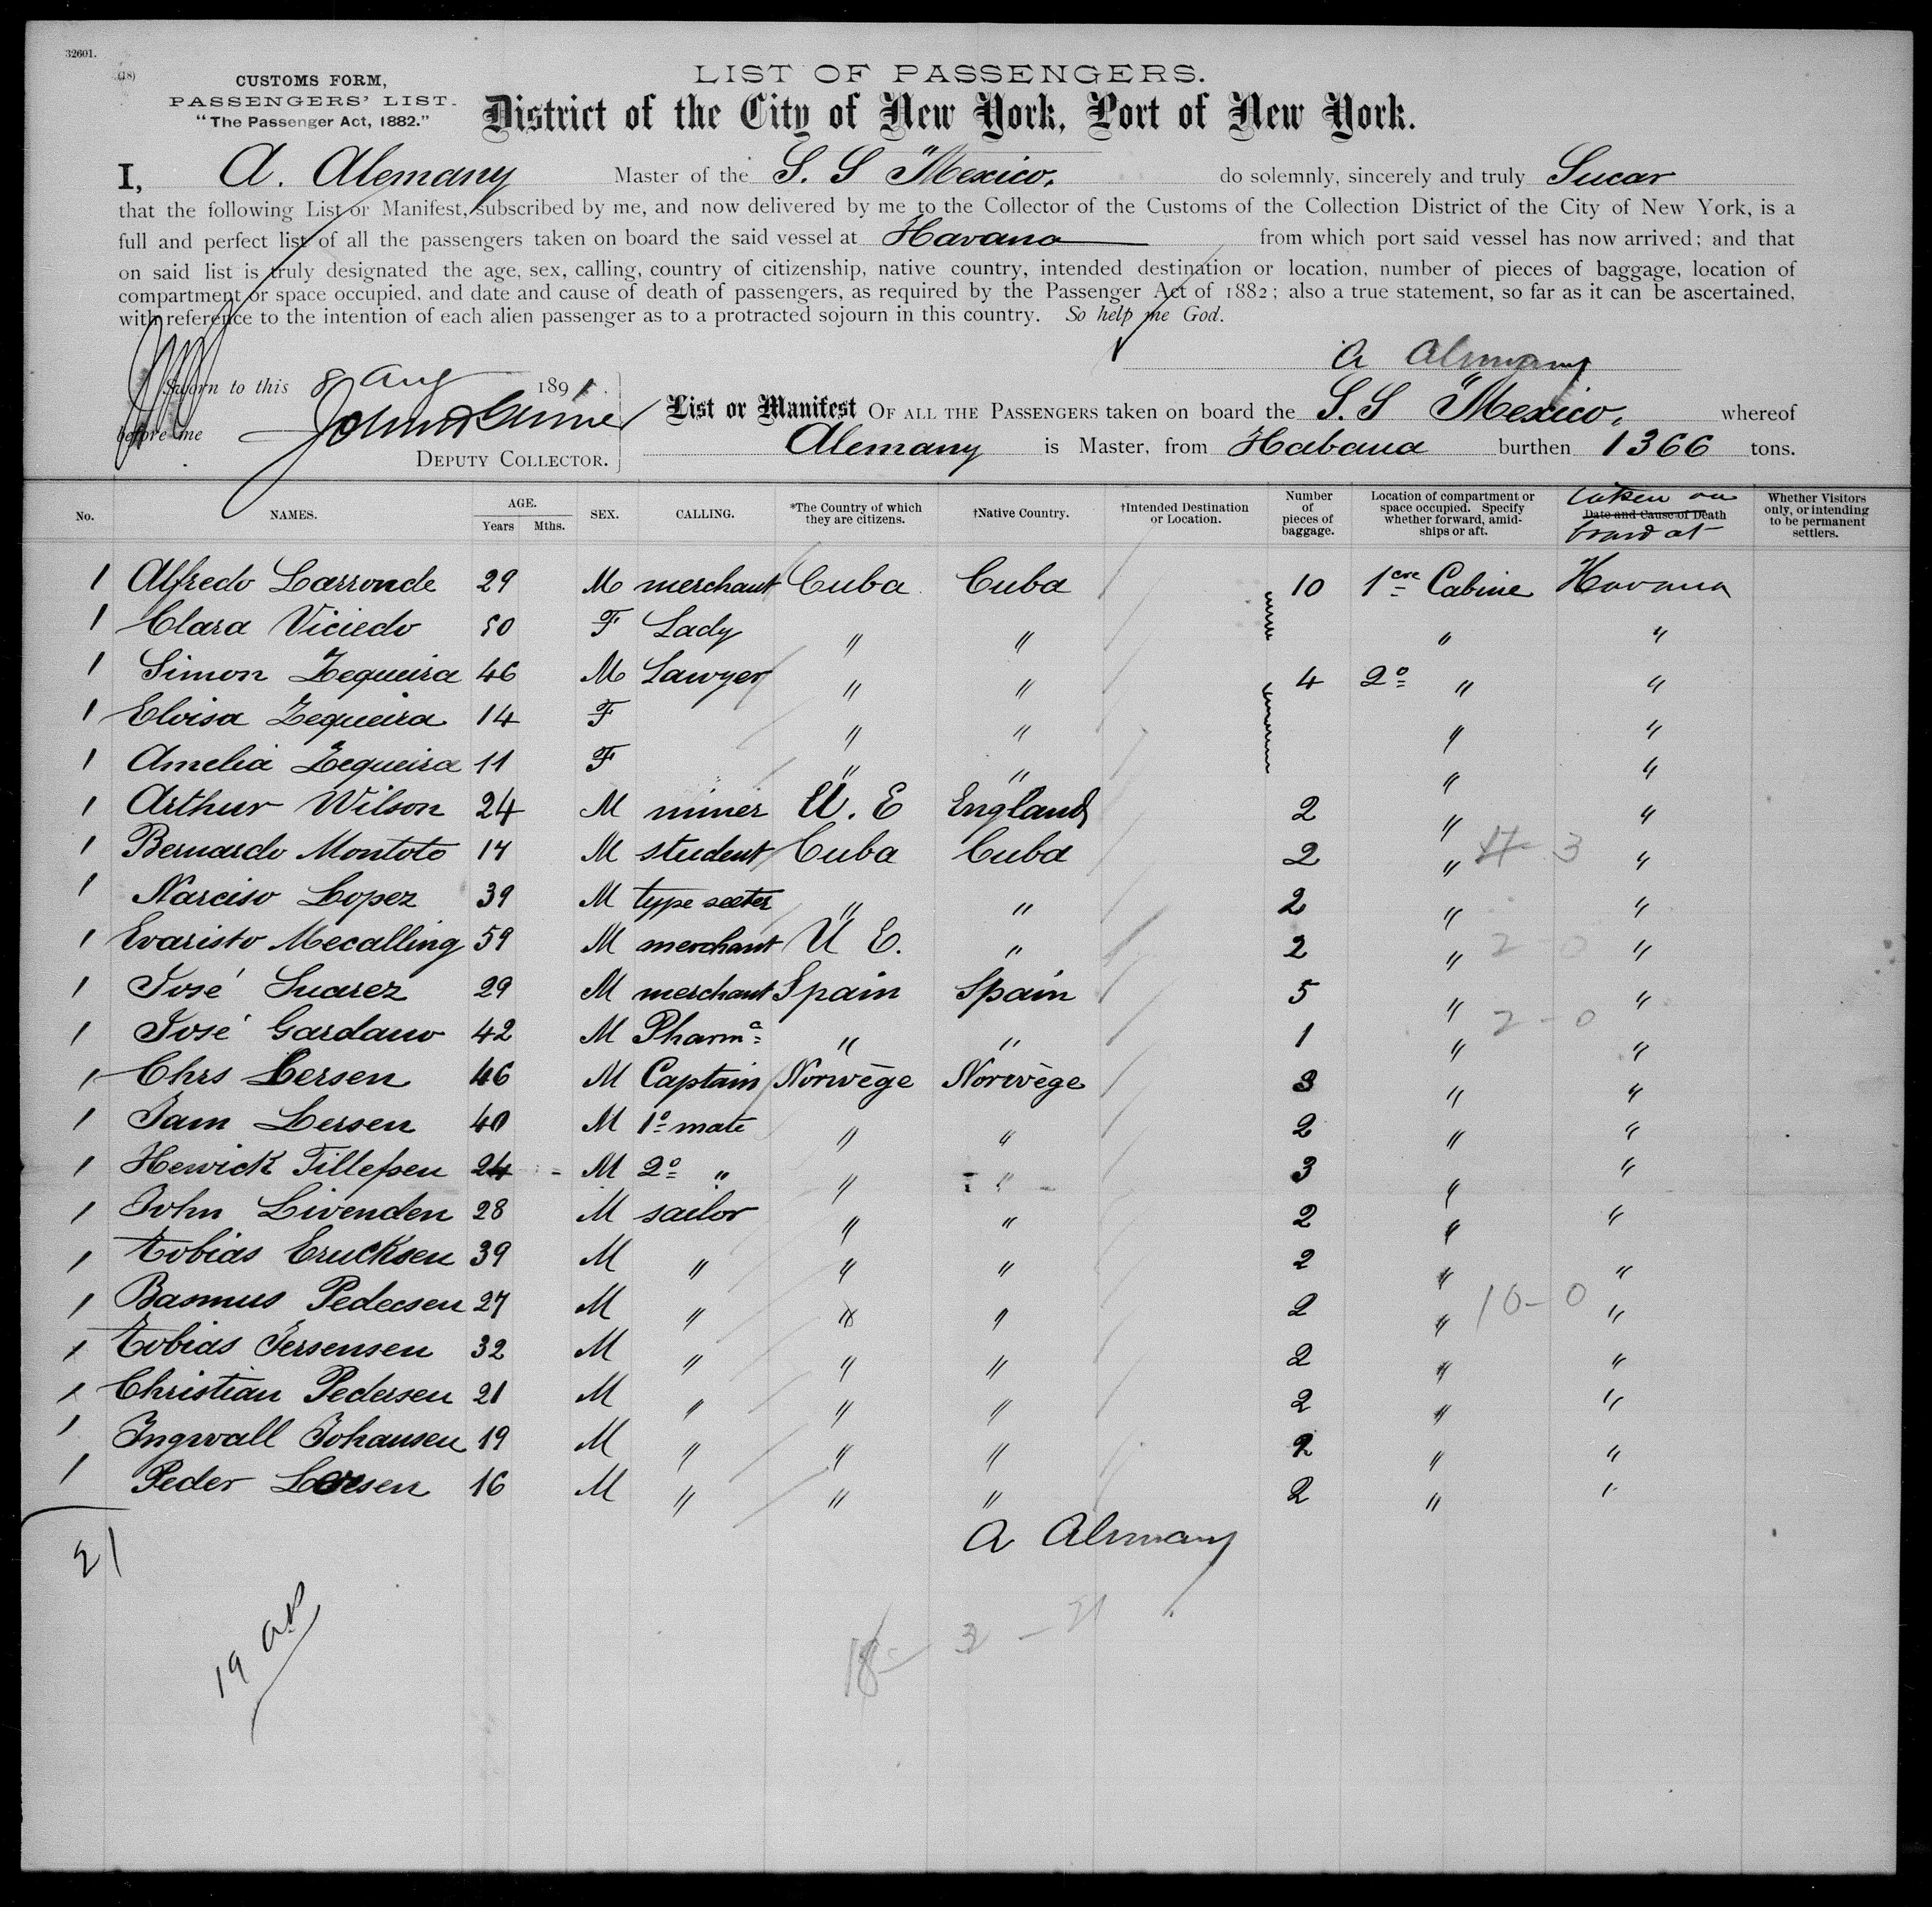 32601.
(18)
CUSTOMS FORM,
PASSENGERS' LIST.
"The Passenger Act, 1882."
LIST OF PASSENGERS.
District of the City of New York, Port of New York.
I, A. Alemany Master of the S. S "Mexico, do solemnly, sincerely and truly Swear
that the following List or Manifest, subscribed by me, and now delivered by me to the Collector of the Customs of the Collection District of the City of New York, is a
full and perfect list of all the passengers taken on board the said vessel at Havana from which port said vessel has now arrived; and that
on said list is truly designated the age, sex, calling, country of citizenship, native country, intended destination or location, number of pieces of baggage, location of
compartment or space occupied, and date and cause of death of passengers, as required by the Passenger Act of 1882; also a true statement, so far as it can be ascertained,
with reference to the intention of each alien passenger as to a protracted sojourn in this country. So help me God.
A Alemany
Sworn to this 8 Aug 1891.
before me
DEPUTY COLLECTOR.
List or Manifest OF ALL THE PASSENGERS taken on board the S. S "Mexico, whereof
Alemany is Master, from Habana burthen 1366 tons.
No. NAMES. AGE. Years Mths. SEX. CALLING. *The Country of which they are citizens. †Native Country. †Intended Destination or Location. Number of pieces of baggage. Location of compartment or space occupied. Specify whether forward, amidships or aft. Date and Cause of Death taken on board at Whether Visitors only, or intending to be permanent settlers.
1 Alfredo Larronde 29 M merchant Cuba Cuba 10 1ere Cabine Havana
1 Clara Viciedo 50 F Lady " " " "
1 Simon Zequeira 46 M Lawyer " " 4 2º " "
1 Eloisa Zequeira 14 F " " " "
1 Amelia Zequeira 11 F " " " "
1 Arthur Wilson 24 M miner U. E England 2 " "
1 Bernardo Montoto 17 M student Cuba Cuba 2 " 3 "
1 Narciso Lopez 39 M type seeter " " 2 " "
1 Evaristo Mecalling 59 M merchant U E. " 2 " 2 - 0 "
1 José Suarez 29 M merchant Spain Spain 5 " "
1 José Gardano 42 M Pharmª " " 1 " 2 - 0 "
1 Chrs Lersen 46 M Captain Norwège Norwège 3 " "
1 Jam Lersen 40 M 1º mate " " 2 " "
1 Hewick Tillefsen 24 M 2º " " " 3 " "
1 John Livenden 28 M sailor " " 2 " "
1 Tobias Erucksen 39 M " " " 2 " "
1 Basmus Pedecsen 27 M " " " 2 " 10 - 0 "
1 Tobias Jersensen 32 M " " " 2 " "
1 Christian Pedersen 21 M " " " 2 " "
1 Ingwall Johansen 19 M " " " 2 " "
1 Peder Lersen 16 M " " " 2 " "
21
A Alemany
18 - 3 - 21
19